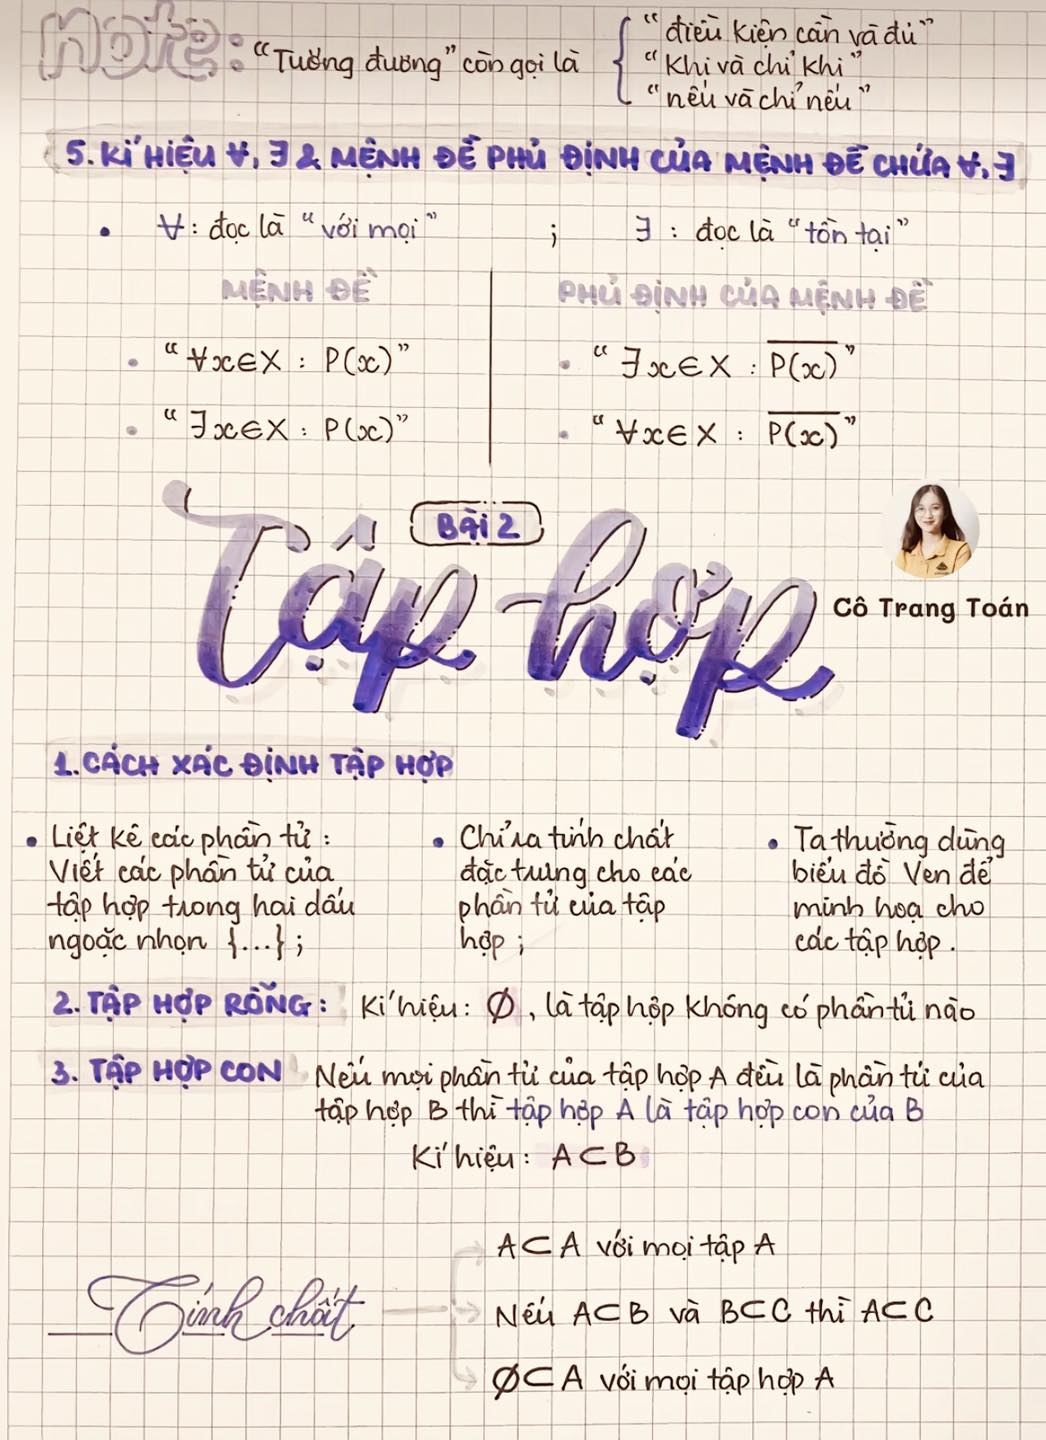 Note: "Tương đương" còn gọi là { "điều kiện cần và đủ"
"khi và chỉ khi"
"nếu và chỉ nếu"
5. KÍ HIỆU ∀, ∃ & MỆNH ĐỀ PHỦ ĐỊNH CỦA MỆNH ĐỀ CHỨA ∀, ∃
• ∀: đọc là "với mọi" ; ∃ : đọc là "tồn tại"
MỆNH ĐỀ
• "∀x∈X : P(x)"
• "∃x∈X : P(x)"
PHỦ ĐỊNH CỦA MỆNH ĐỀ
• "∃x∈X : P̅(̅x̅)̅"
• "∀x∈X : P̅(̅x̅)̅"
Bài 2
Tập hợp
Cô Trang Toán
1. CÁCH XÁC ĐỊNH TẬP HỢP
• Liệt kê các phần tử :
Viết các phần tử của
tập hợp trong hai dấu
ngoặc nhọn {...} ;
• Chỉ ra tính chất
đặc trưng cho các
phần tử của tập
hợp ;
• Ta thường dùng
biểu đồ Ven để
minh hoạ cho
các tập hợp .
2. TẬP HỢP RỖNG : Kí hiệu : ∅ , là tập hộp không có phần tử nào
3. TẬP HỢP CON Nếu mọi phần tử của tập hợp A đều là phần tử của
tập hợp B thì tập hợp A là tập hợp con của B
Kí hiệu : A⊂B
Tính chất
A⊂A với mọi tập A
Nếu A⊂B và B⊂C thì A⊂C
∅⊂A với mọi tập hợp A